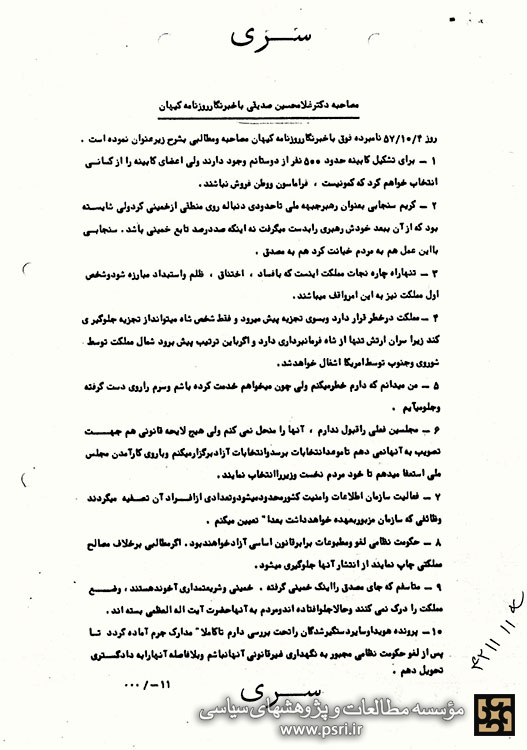 سری
مصاحبه دکترغلامحسین صدیقی باخبرنگارروزنامه کیهان
روز ۵۷/۱۰/۴ نامبرده فوق باخبرنگارروزنامه کیهان مصاحبه ومطالبی بشرح زیرعنوان نموده است .
۱ – برای تشکیل کابینه حدود ۵۰۰ نفر از دوستانم وجود دارند ولی اعضای کابینه را ازکسانی
انتخاب خواهم کرد که کمونیست ، فراماسون ووطن فروش نباشند .
۲ – کریم سنجابی بعنوان رهبرجبهه ملی تاحدودی دنباله روی منطقی ازخمینی کردولی شایسته
بود که ازآن ببعد خودش رهبری رابدست میگرفت نه اینکه صددرصد تابع خمینی باشد . سنجابی
بااین عمل هم به مردم خیانت کرد هم به مصدق .
۳ – تنهاراه چاره نجات مملکت اینست که بافساد ، اختناق ، ظلم واستبداد مبارزه شودوشخص
اول مملکت نیز به این امرواقف میباشند .
۴ – مملکت درخطر قرار دارد وبسوی تجزیه پیش میرود و فقط شخص شاه میتوانداز تجزیه جلوگیری
کند زیرا سران ارتش تنها از شاه فرمانبرداری دارد و اگرباین ترتیب پیش برود شمال مملکت توسط
شوروی وجنوب توسط امریکا اشغال خواهدشد .
۵ – من میدانم که دارم خطرمیکنم ولی چون میخواهم خدمت کرده باشم وسرم راروی دست گرفته
وجلومیآیم .
۶ – مجلسین فعلی راقبول ندارم ، آنها را منحل نمی کنم ولی هیچ لایحه قانونی هم جهت
تصویب به آنهانمی دهم تاموعدانتخابات برسدوانتخابات آزادبرگزارمیکنم وباروی کارآمدن مجلس
ملی استعفا میدهم تا خود مردم نخست وزیرراانتخاب نمایند .
۷ – فعالیت سازمان اطلاعات وامنیت کشورمحدودمیشودوتعدادی ازافراد آن تصفیه میگردند
وظائفی که سازمان مزبوربعهده خواهدداشت بعدا" تعیین میکنم .
۸ – حکومت نظامی لغو ومطبوعات برابرقانون اساسی آزادخواهندبود . اگرمطالبی برخلاف مصالح
مملکتی چاپ نمایند از انتشار آنها جلوگیری میشود .
۹ – متاسفم که جای مصدق رااینک خمینی گرفته . خمینی وشریعتمداری آخوندهستند ، وضع
مملکت را درک نمی کنند وحالاجلوافتاده اندومردم به آنهاحضرت آیت اله العظمی بسته اند .
۱۰ – پرونده هویداوسایردستگیرشدگان راتحت بررسی دارم تاکاملا" مدارک جرم آماده گردد تا
پس از لغو حکومت نظامی مجبور به نگهداری غیرقانونی آنهانباشم وبلافاصله آنهارابه دادگستری
تحویل دهم .
۱۱–/۰۰۰
سری
مؤسسه مطالعات و پژوهشهای سیاسی
www.psri.ir